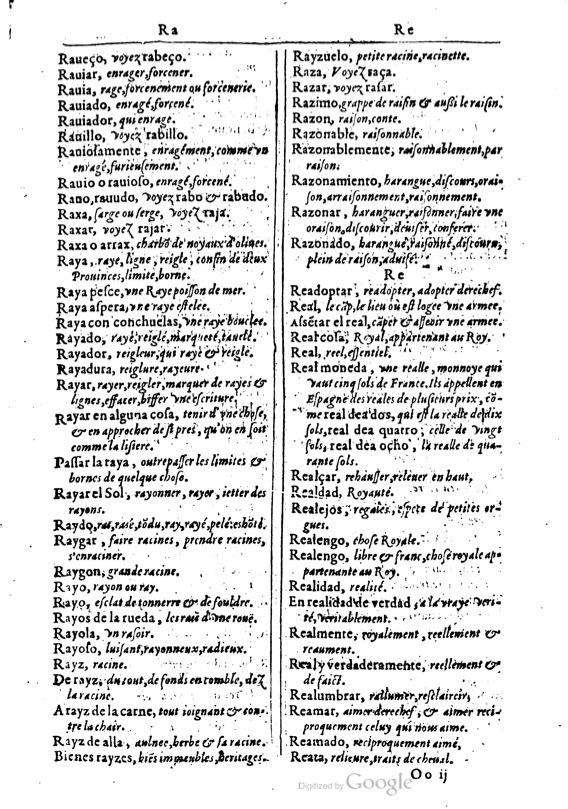 Ra
Raueço, voyez rabeço.
Rauiar, enrager, forcener.
Rauia, rage, forcenement ou forcenerie.
Rauiado, enragé, forcené.
Rauiador, qui enrage.
Rauillo, voyez rabillo.
Rauiosamente, enragément, comme vn
enragé, furieusement.
Rauio o rauioso, enragé, forcené.
Rauo, rauudo, voyez rabo & rabudo.
Raxa, sarge ou serge, voyez raja.
Raxar, voyez rajar.
Raxa o arrax, charbõ de noyaux d'oliues.
Raya, raye, ligne, reigle, confin de deux
Prouinces, limite, borne.
Raya pesce, vne Raye poisson de mer.
Raya aspera, vne raye estelée.
Raya con conchuelas, vne raye bouclee.
Rayado, rayé, reiglé, marqueté,
Rayador, reigleur, qui raye & reigle.
Rayadura, reiglure, rayeure.
Rayar, rayer, reigler, marquer de rayes &
lignes, effacer, biffer vne escriture.
Rayar en alguna cosa, tenir d'vne chose,
& en approcher de si pres, qu'on en soit
comme la lisiere.
Passar la raya, outrepasser les limites &
bornes de quelque chose.
Rayar el Sol, rayonner, rayer, ietter des
rayons.
Raydo, rat, rasé, tõdu, ray, rayé, pelé:
Raygar, faire racines, prendre racines,
s'enraciner.
Raygon, grande racine.
Rayo, rayon ou ray.
Rayo, esclat de tonnerre & de fouldre.
Rayos de la rueda, les rais d'vne rouë.
Rayola, vn rasoir.
Rayoso, luisant, rayonneux, radieux.
Rayz, racine.
De rayz, du tout, de fonds en comble, dez
la raciné.
A rayz de la carne, tout ioignant & contre
la chair.
Rayz de alla, aulnee, herbe & sa racine.
Bienes rayzes, biẽs immeubles, heritages.
Re
Rayzuelo, petite racine, racinette.
Raza, Voyez raça.
Razar, voyez rasar.
Razimo, grappe de raisin & aussi le raisin.
Razon, raison, conte.
Razonable, raisonnable.
Razonablemente, raisonnablement, par
raison.
Razonamiento, harangue, discours, oraison,
arraisonnement, raisonnement.
Razonar, haranguer, raisonner, faire vne
oraison, discourir, deuiser, conferer.
Razonado, harangué, raisonné, discouru,
plein de raison, aduisé.
Re
Readoptar, readopter, adopter derechef.
Real, le cãp, le lieu où est logee vne armee.
Assẽtar el real, cãper & asseoir vne armee.
Real cosa, Royal, appartenant au Roy.
Real, reel, essentiel.
Real moneda, vne realle, monnoye qui
vaut cinq sols de France. Ils appellent en
Espagne des reales de plusieurs prix, cõme
real de a dos, qui est la realle de dix
sols, real de a quatro, celle de vingt
sols, real de a ocho, la realle de quarante
sols.
Realçar, rehausser, releuer en haut,
Realdad, Royauté.
Realejos, regales, espece de petites orgues.
Realengo, chose Royale.
Realengo, libre & franc, chose royale appartenante
au Roy.
Realidad, realité.
En realidad de verdad, à la vraye verité,
veritablement.
Realmente, royalement, reellement &
reaument.
Real y verdaderamente, reellement &
de faict.
Realumbrar, rallumer, resclaircir,
Reamar, aimer derechef, & aimer reciproquement
celuy qui nous aime.
Reamado, reciproquement aimé,
Reata, relieure, traits de cheual.
Oo ij
Digitized by Google